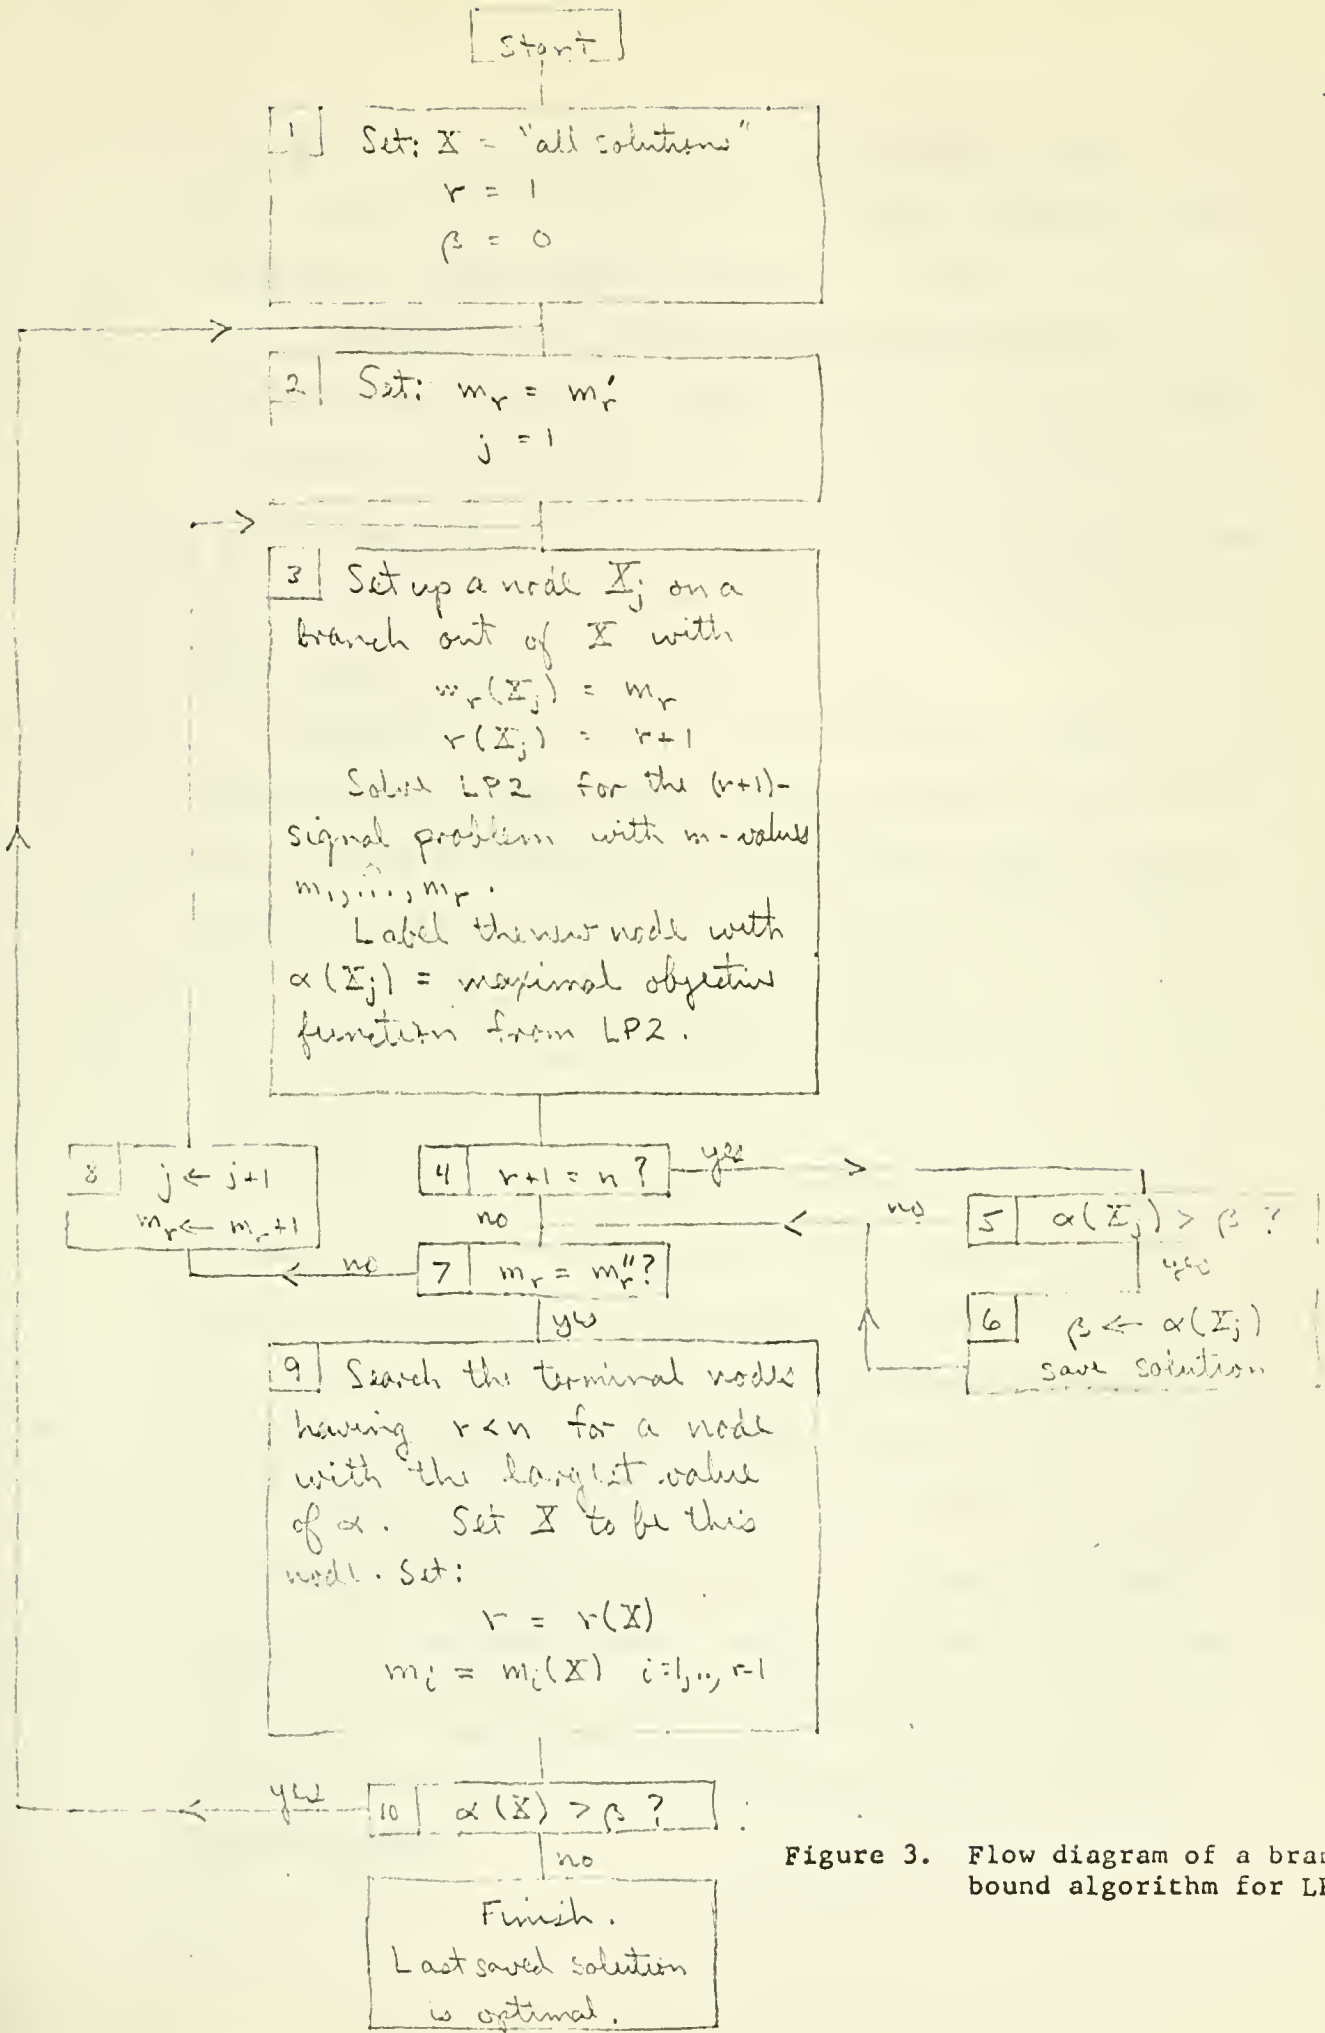 Start
1 Set: X = "all solutions"
r = 1
β = 0
2 Set: m_r = m_r'
j = 1
3 Set up a node X_j on a
branch out of X with
m_r(X_j) = m_r
r(X_j) = r+1
Solve LP2 for the (r+1)-
signal problem with m-values
m_1, ..., m_r.
Label the new node with
α(X_j) = maximal objective
function from LP2.
8 j ← j+1
m_r ← m_r+1
4 r+1 = n ?
yes
no
5 α(X_j) > β ?
no
yes
7 m_r = m_r''?
no
yes
6 β ← α(X_j)
save solution
9 Search the terminal nodes
having r<n for a node
with the largest value
of α. Set X to be this
node. Set:
r = r(X)
m_i = m_i(X) i=1,.., r-1
yes
10 α(X) > β ?
no
Finish.
Last saved solution
is optimal.
Figure 3. Flow diagram of a
bound algorithm for